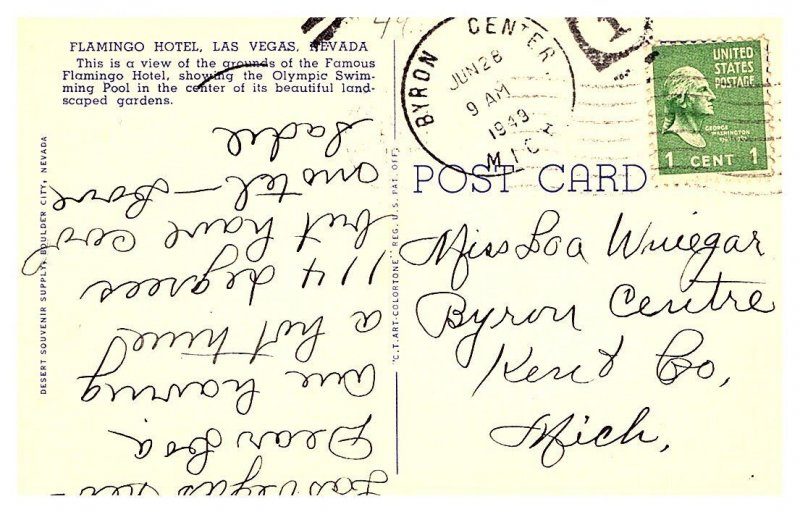 FLAMINGO HOTEL, LAS VEGAS, NEVADA
This is a view of the grounds of the Famous
Flamingo Hotel, showing the Olympic Swim-
ming Pool in the center of its beautiful land-
scaped gardens.
DESERT SOUVENIR SUPPLY, BOULDER CITY, NEVADA
Las Vegas Nev -
Dear Loa
are having
a hot time
114 degrees
but have cool
motel - Love
Sadie
"C.T. ART-COLORTONE" REG. U.S. PAT. OFF.
BYRON CENTER, MICH
JUN 28
9 AM
1949
UNITED
STATES
POSTAGE
GEORGE
WASHINGTON
1 CENT 1
POST CARD
Miss Loa Winegar
Byron Centre
Kent Co,
Mich,